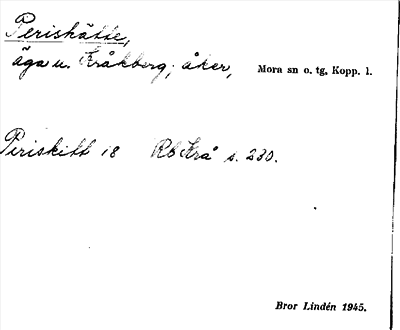 Perishätte,
äga u. Kråkberg; åker, Mora sn o. tg, Kopp. l.
Periskitt 18 RbKrå s. 230.
Bror Lindén 1945.